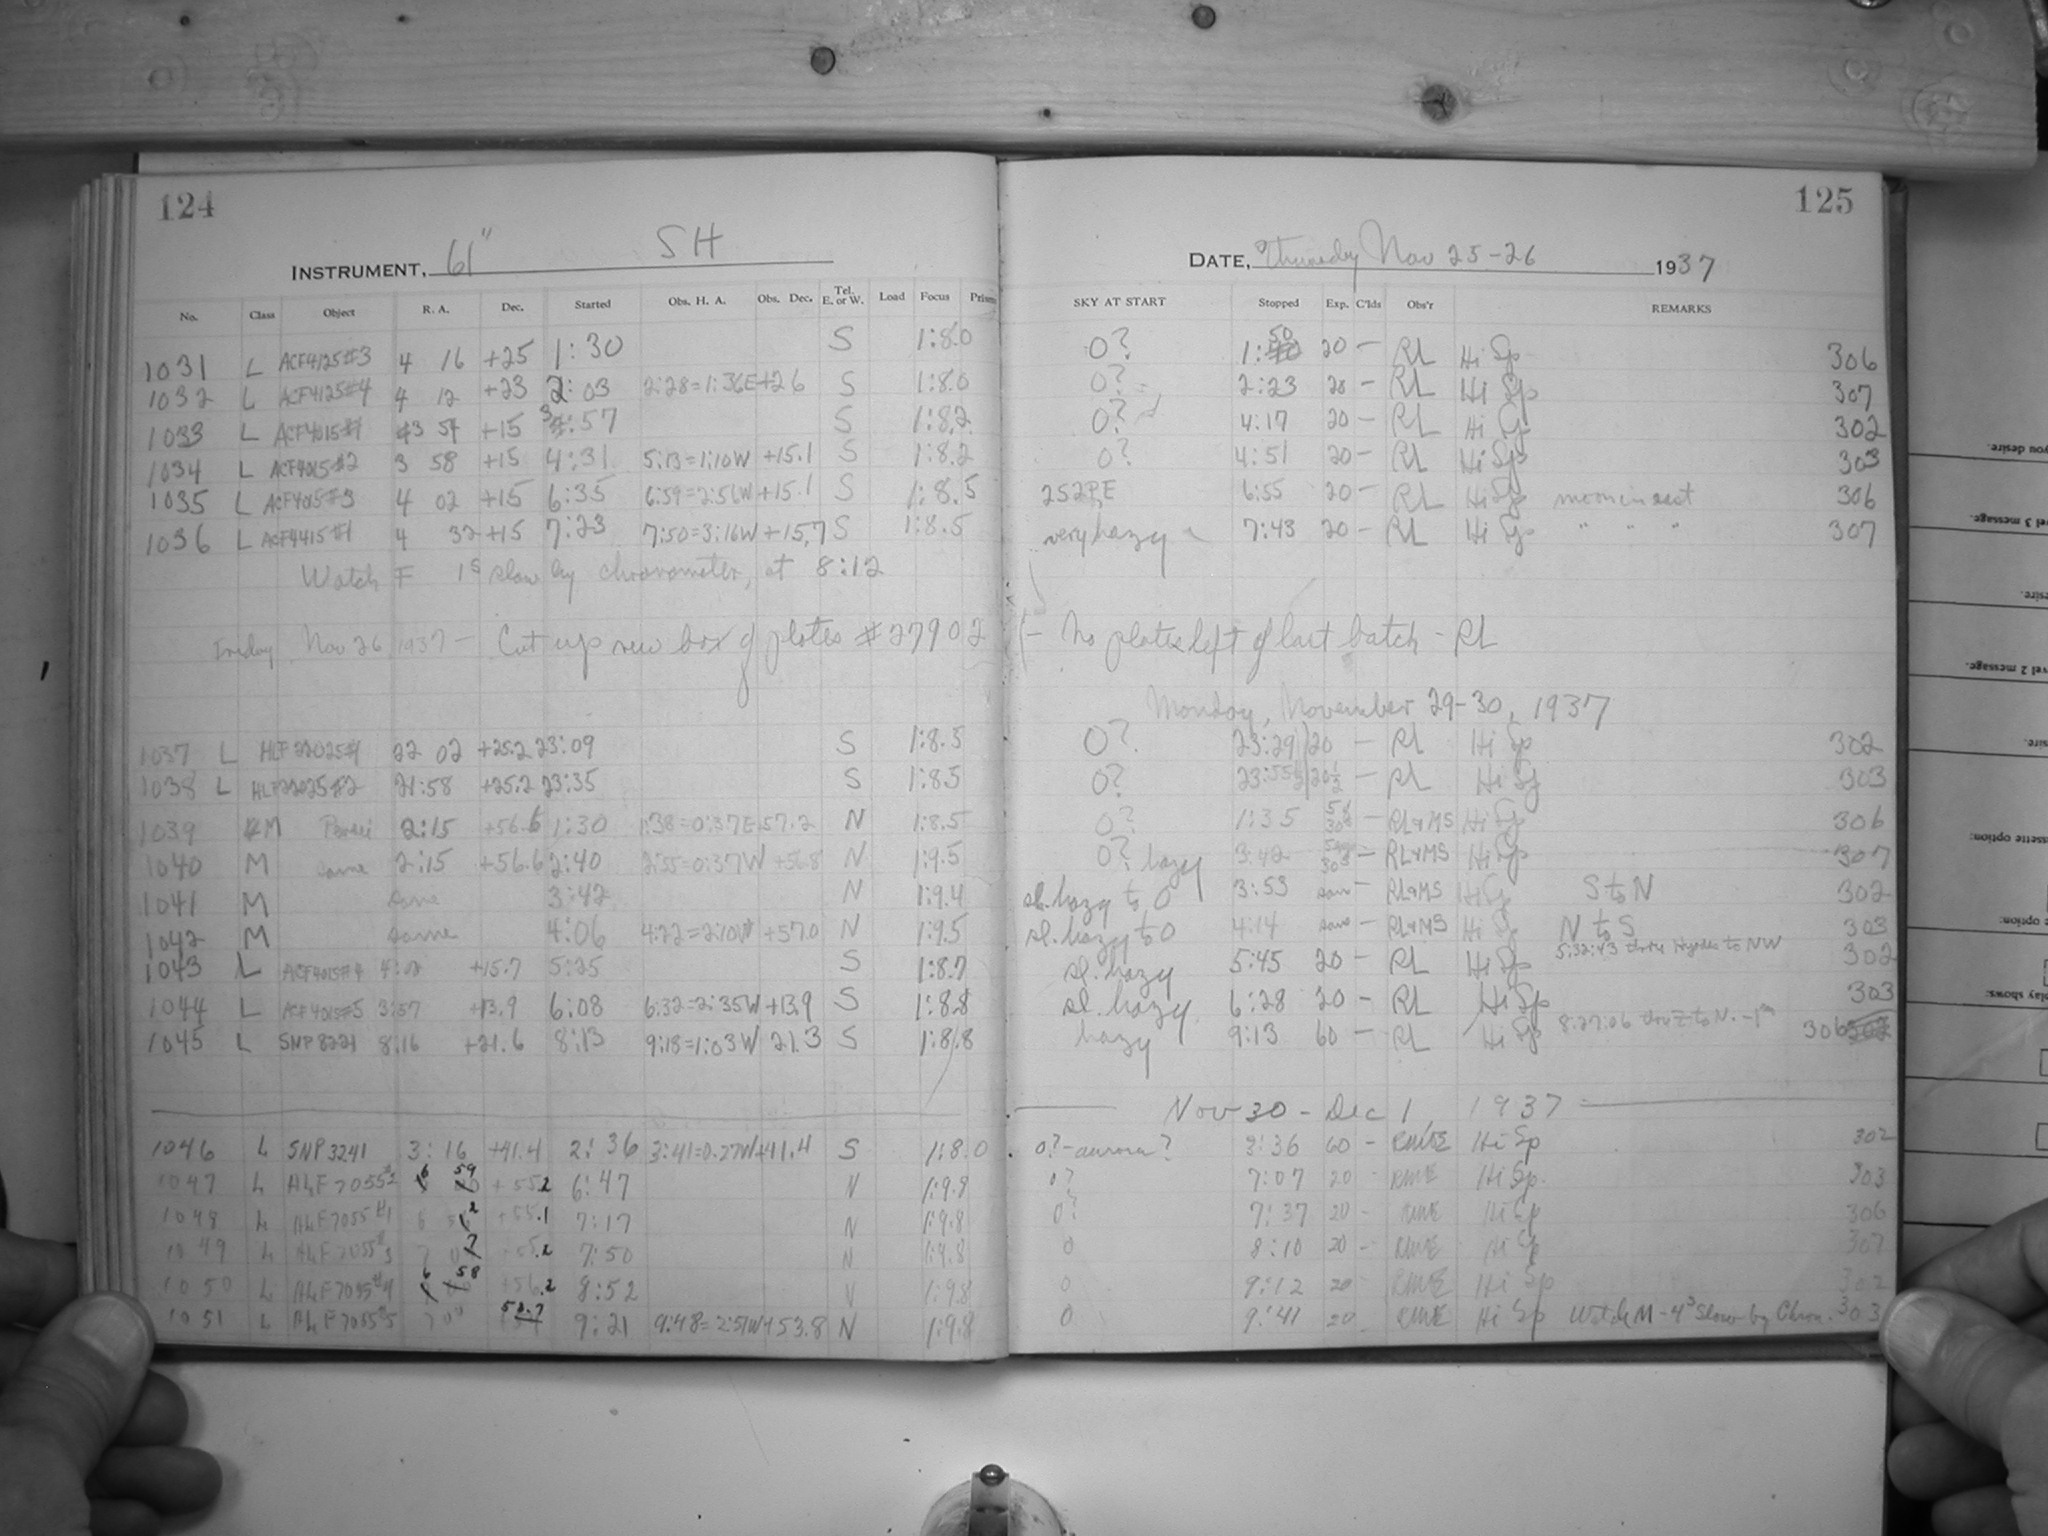 124
INSTRUMENT, 61" SH
No. Class Object R. A. Dec. Started Obs. H. A. Obs. Dec. Tel. E. or W. Load Focus Prism
1031 L ACF4125#3 4 16 +25 1:30 S 1:8.0
1032 L ACF4125#4 4 12 +23 2:03 2:28=1:36E +26 S 1:8.0
1033 L ACF4015#1 3 54 +15 3:57 S 1:8.2
1034 L ACF4015#2 3 58 +15 4:31 5:13=1:10W +15.1 S 1:8.2
1035 L ACF4015#3 4 02 +15 6:35 6:59=2:56W +15.1 S 1:8.5
1036 L ACF4415#1 4 32 +15 7:23 7:50=3:16W +15.7 S 1:8.5
Watch F 1s slow by chronometer, at 8:12
Friday Nov 26 1937 — Cut up new box of plates #27902
1037 L HLF22025#1 22 02 +25.2 23:09 S 1:8.5
1038 L HLF22025#2 21:58 +25.2 23:35 S 1:8.5
1039 M 2:15 +56.6 1:30 1:38=0:37E 57.2 N 1:8.5
1040 M same 2:15 +56.6 2:40 2:55=0:37W +56.8 N 1:9.5
1041 M same 3:42 N 1:9.4
1042 M same 4:06 4:22=2:10W +57.0 N 1:9.5
1043 L ACF4015#4 +15.7 5:25 S 1:8.7
1044 L ACF4015#5 3:57 +13.9 6:08 6:32=2:35W +13.9 S 1:8.8
1045 L SNP8221 8:16 +21.6 8:13 9:18=1:03W 21.3 S 1:8.8
1046 L SNP3241 3:16 +41.4 2:36 3:41=0.27W +41.4 S 1:8.0
1047 L ALF7055#2 6 59 +55.2 6:47 N 1:9.8
1048 L ALF7055#1 +55.1 7:17 N 1:9.8
1049 L ALF7055#3 7 +55.2 7:50 N 1:9.8
1050 L ALF7055#4 6 58 +56.2 8:52 N 1:9.8
1051 L ALF7055#5 7 9:21 9:48=2:51W +53.8 N 1:9.8
125
DATE, Thursday Nov 25-26 1937
SKY AT START Stopped Exp. C'lds Obs'r REMARKS
0? 1:50 20 — RL Hi Sp 306
0? 2:23 20 — RL Hi Sp 307
0? 4:17 20 — RL Hi Sp 302
0? 4:51 20 — RL Hi Sp 303
6:55 20 — RL Hi Sp moon in east 306
very hazy 7:43 20 — RL Hi Sp " " " 307
— No plates left of last batch - RL
Monday, November 29-30, 1937
0? 23:29 20 — RL Hi Sp 302
0? 23:55½ 20½ — RL Hi Sp 303
0? 1:35 — RL&MS Hi Sp 306
0? hazy 3:42 — RL&MS Hi Sp 307
sl. hazy to 0 3:53 same — RL&MS Hi Sp S to N 302
sl. hazy to 0 4:14 same — RL&MS Hi Sp N to S 303
sl. hazy 5:45 20 — RL Hi Sp 5:32:43 thru Hyades to NW 302
sl. hazy 6:28 20 — RL Hi Sp 303
hazy 9:13 60 — RL Hi Sp 8:27:06 thru Z to N. -1m 306
Nov 30 - Dec 1 1937
0? - aurora? 3:36 60 - Hi Sp 302
0? 7:07 20 - Hi Sp. 303
0? 7:37 20 - Hi Sp 306
0 8:10 20 - Hi Sp 307
0 9:12 20 Hi Sp 302
0 9:41 20 Hi Sp Watch M - 4s Slow by Chron. 303
you desire.
vel 3 message.
desire.
vel 2 message.
sire.
ssette option:
e option:
play shows: